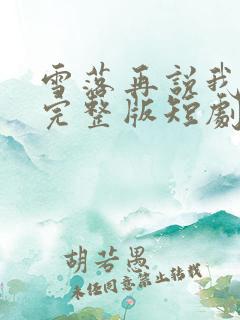 雪落再説我
完整版短劇
胡若愚
未经同意禁止转载